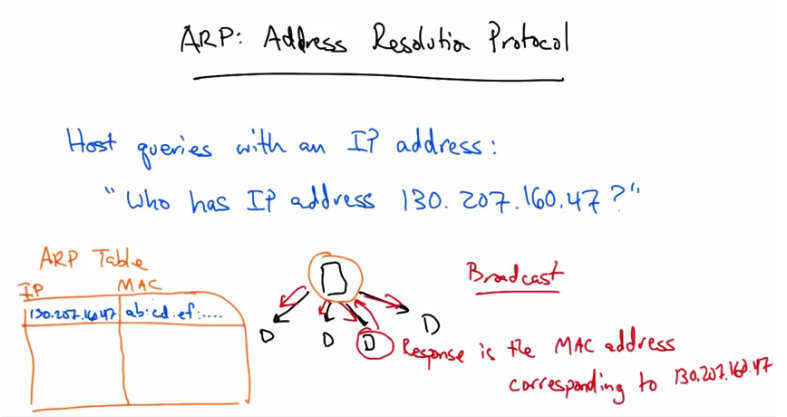 ARP: Address Resolution Protocol
Host queries with an IP address:
"Who has IP address 130.207.160.47?"
ARP Table
IP MAC
130.207.160.47 ab:cd:ef:....
Broadcast
D D D D
Response is the MAC address
corresponding to 130.207.160.47